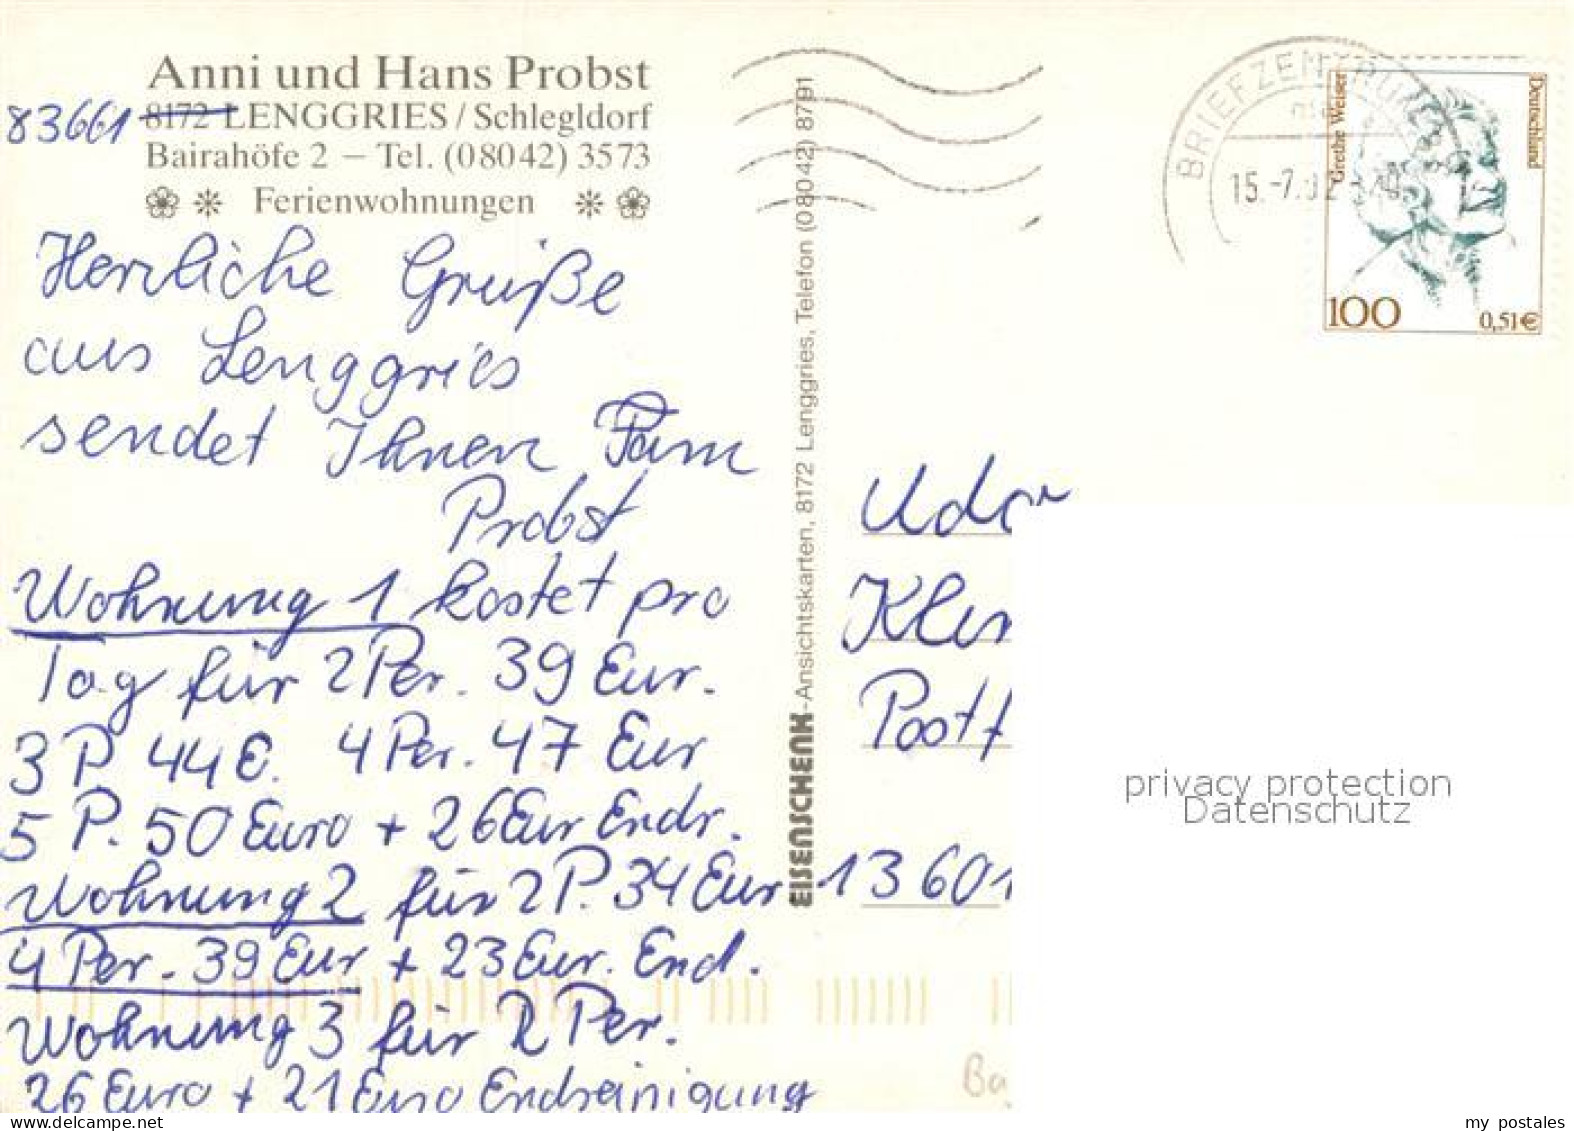 Anni und Hans Probst
83661 8172 LENGGRIES / Schlegldorf
Bairahöfe 2 – Tel. (08042) 3573
Ferienwohnungen
Herzliche Grüße
aus Lenggries
sendet Ihnen Fam
Probst
Wohnung 1 kostet pro
Tag für 2 Per. 39 Eur.
3 P 44 E. 4 Per. 47 Eur
5 P. 50 Euro + 26 Eur Endr.
Wohnung 2 für 2 P. 34 Eur
4 Per. 39 Eur + 23 Eur. End.
Wohnung 3 für 2 Per.
26 Euro + 21 Euro Endreinigung
EISENSCHENK-Ansichtskarten, 8172 Lenggries, Telefon (08042) 8791
BRIEFZENTRUM
15.-7.02
Grethe Weiser
Deutschland
100
0,51€
Klem
Postf
13601
privacy protection
Datenschutz
Ba
my postales